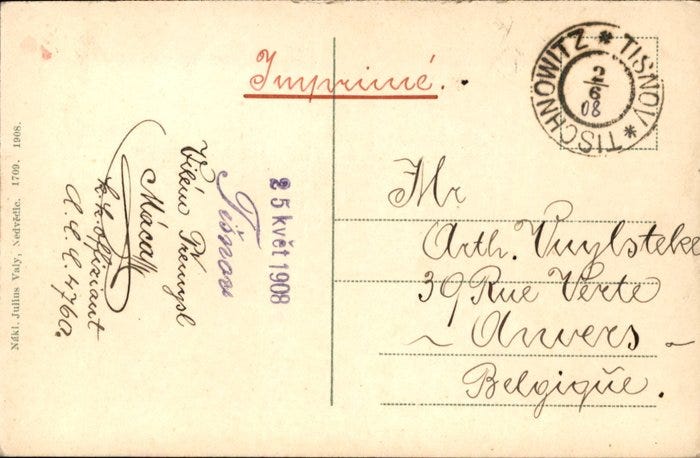 Imprimé.
TISCHNOWITZ * TIŠNOV *
2/6
08
Mr
Arth. Vuylsteke
39 Rue Verte
~ Anvers ~
Belgique.
25 květ 1908
Tišnov
Vilém Přemysl
Máca
k.k. Offiziant
C.C.C. 4760.
Nákl. Julius Valy, Nedvědic. 1709. 1908.